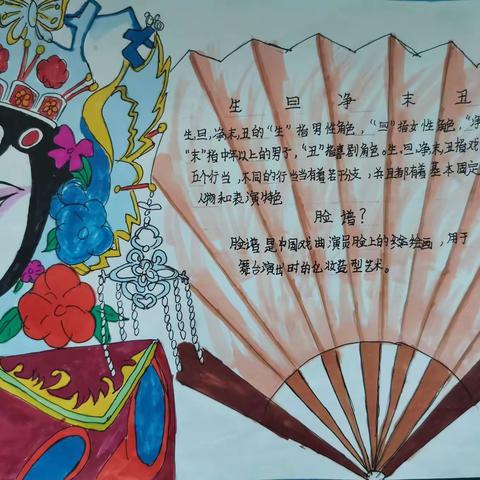 生 旦 净 末 丑
生、旦、净、末、丑的“生”指男性角色，“旦”指女性角色，“净
“末”指中年以上的男子，“丑”指喜剧角色。生、旦、净、末、丑指戏
五个行当，不同的行当当有着若干分支，并且都有着基本固定
人物和表演特色
脸谱？
脸谱是中国戏曲演员脸上的绘画，用于
舞台演出时的化妆造型艺术。